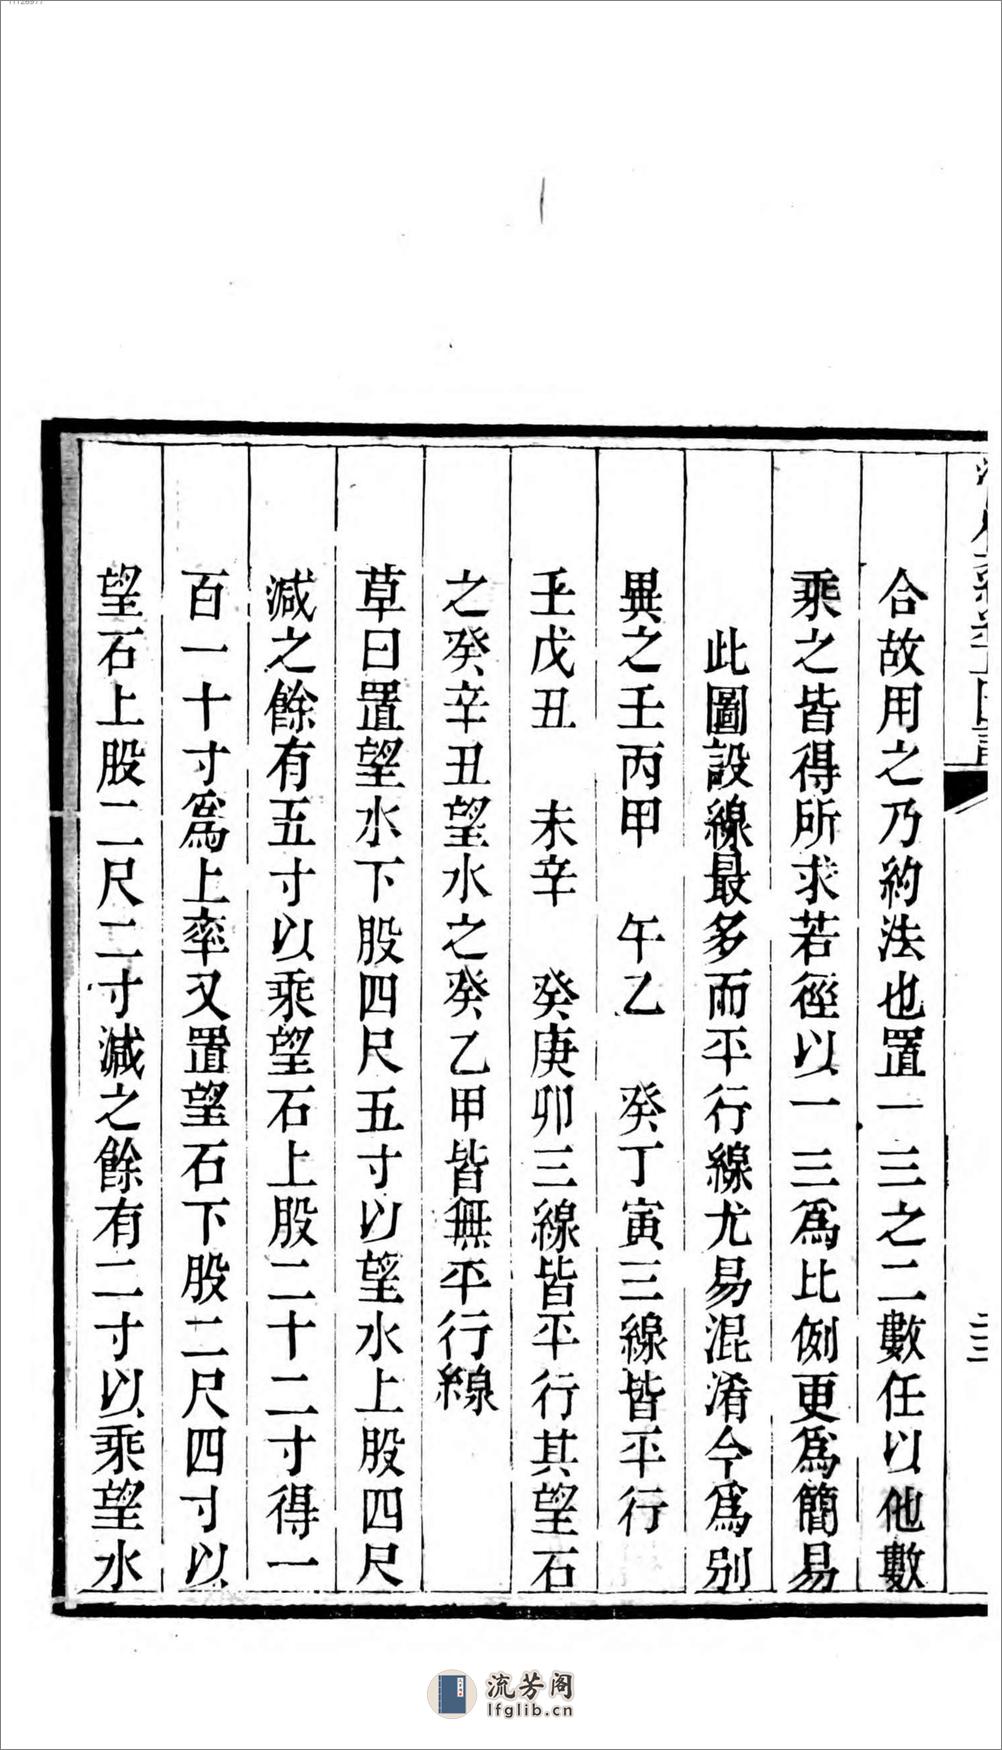 合故用之乃約法也置一三之二數任以他數
乘之皆得所求若徑以一三爲比例更爲簡易
此圖設線最多而平行線尤易混淆今爲別
異之壬丙甲　午乙　癸丁寅三線皆平行
壬戊丑　未辛　癸庚卯三線皆平行其望石
之癸辛丑望水之癸乙甲皆無平行線
草曰置望水下股四尺五寸以望水上股四尺
減之餘有五寸以乘望石上股二十二寸得一
百一十寸爲上率又置望石下股二尺四寸以
望石上股二尺二寸減之餘有二寸以乘望水
流芳阁
lfglib.cn